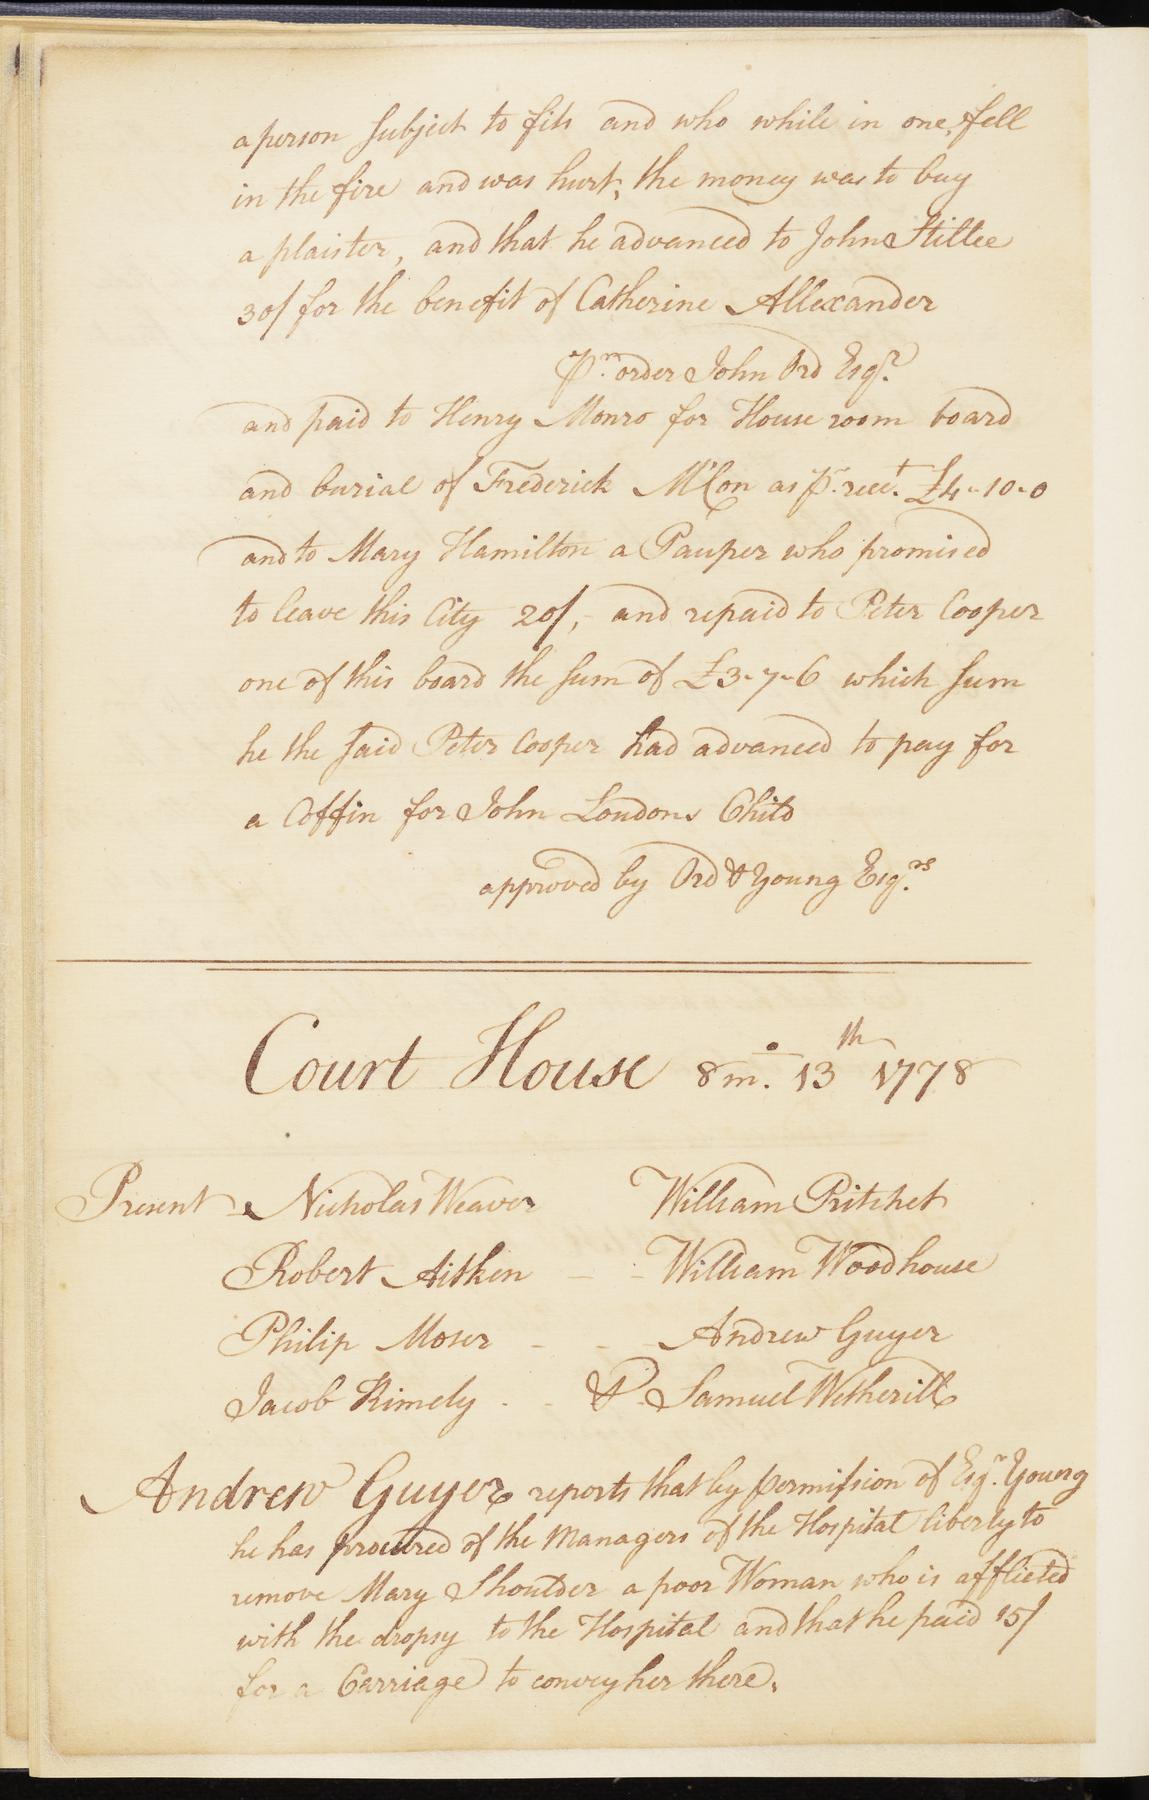 a person subject to fits and who while in one, fell
in the fire and was hurt, the money was to buy
a plaister, and that he advanced to John Stillee
30/ for the benefit of Catherine Allexander
Pr. order John Ord Esqr.
and paid to Henry Monro for House room board
and burial of Frederick as Pr. rect. £4-10-0
and to Mary Hamilton a Pauper who promised
to leave this City 20/, and repaid to Peter Cooper
one of this board the sum of £3-7-6 which sum
he the said Peter Cooper had advanced to pay for
a Coffin for John Loudons Child
approved by Ord & Young Esqrs.
Court House 8m. 13th 1778
Present Nicholas Weaver William Pritchet
Robert Aitken - - William Woodhouse
Philip Moser - - Andrew Guyer
Jacob Rimely - - & Samuel Wetherill
Andrew Guyer reports that by permission of Esqr. Young
he has procured of the Managers of the Hospital liberty to
remove Mary Shoulder a poor Woman who is afflicted
with the dropsy to the Hospital and that he paid 15/
for a Carriage to convey her there.